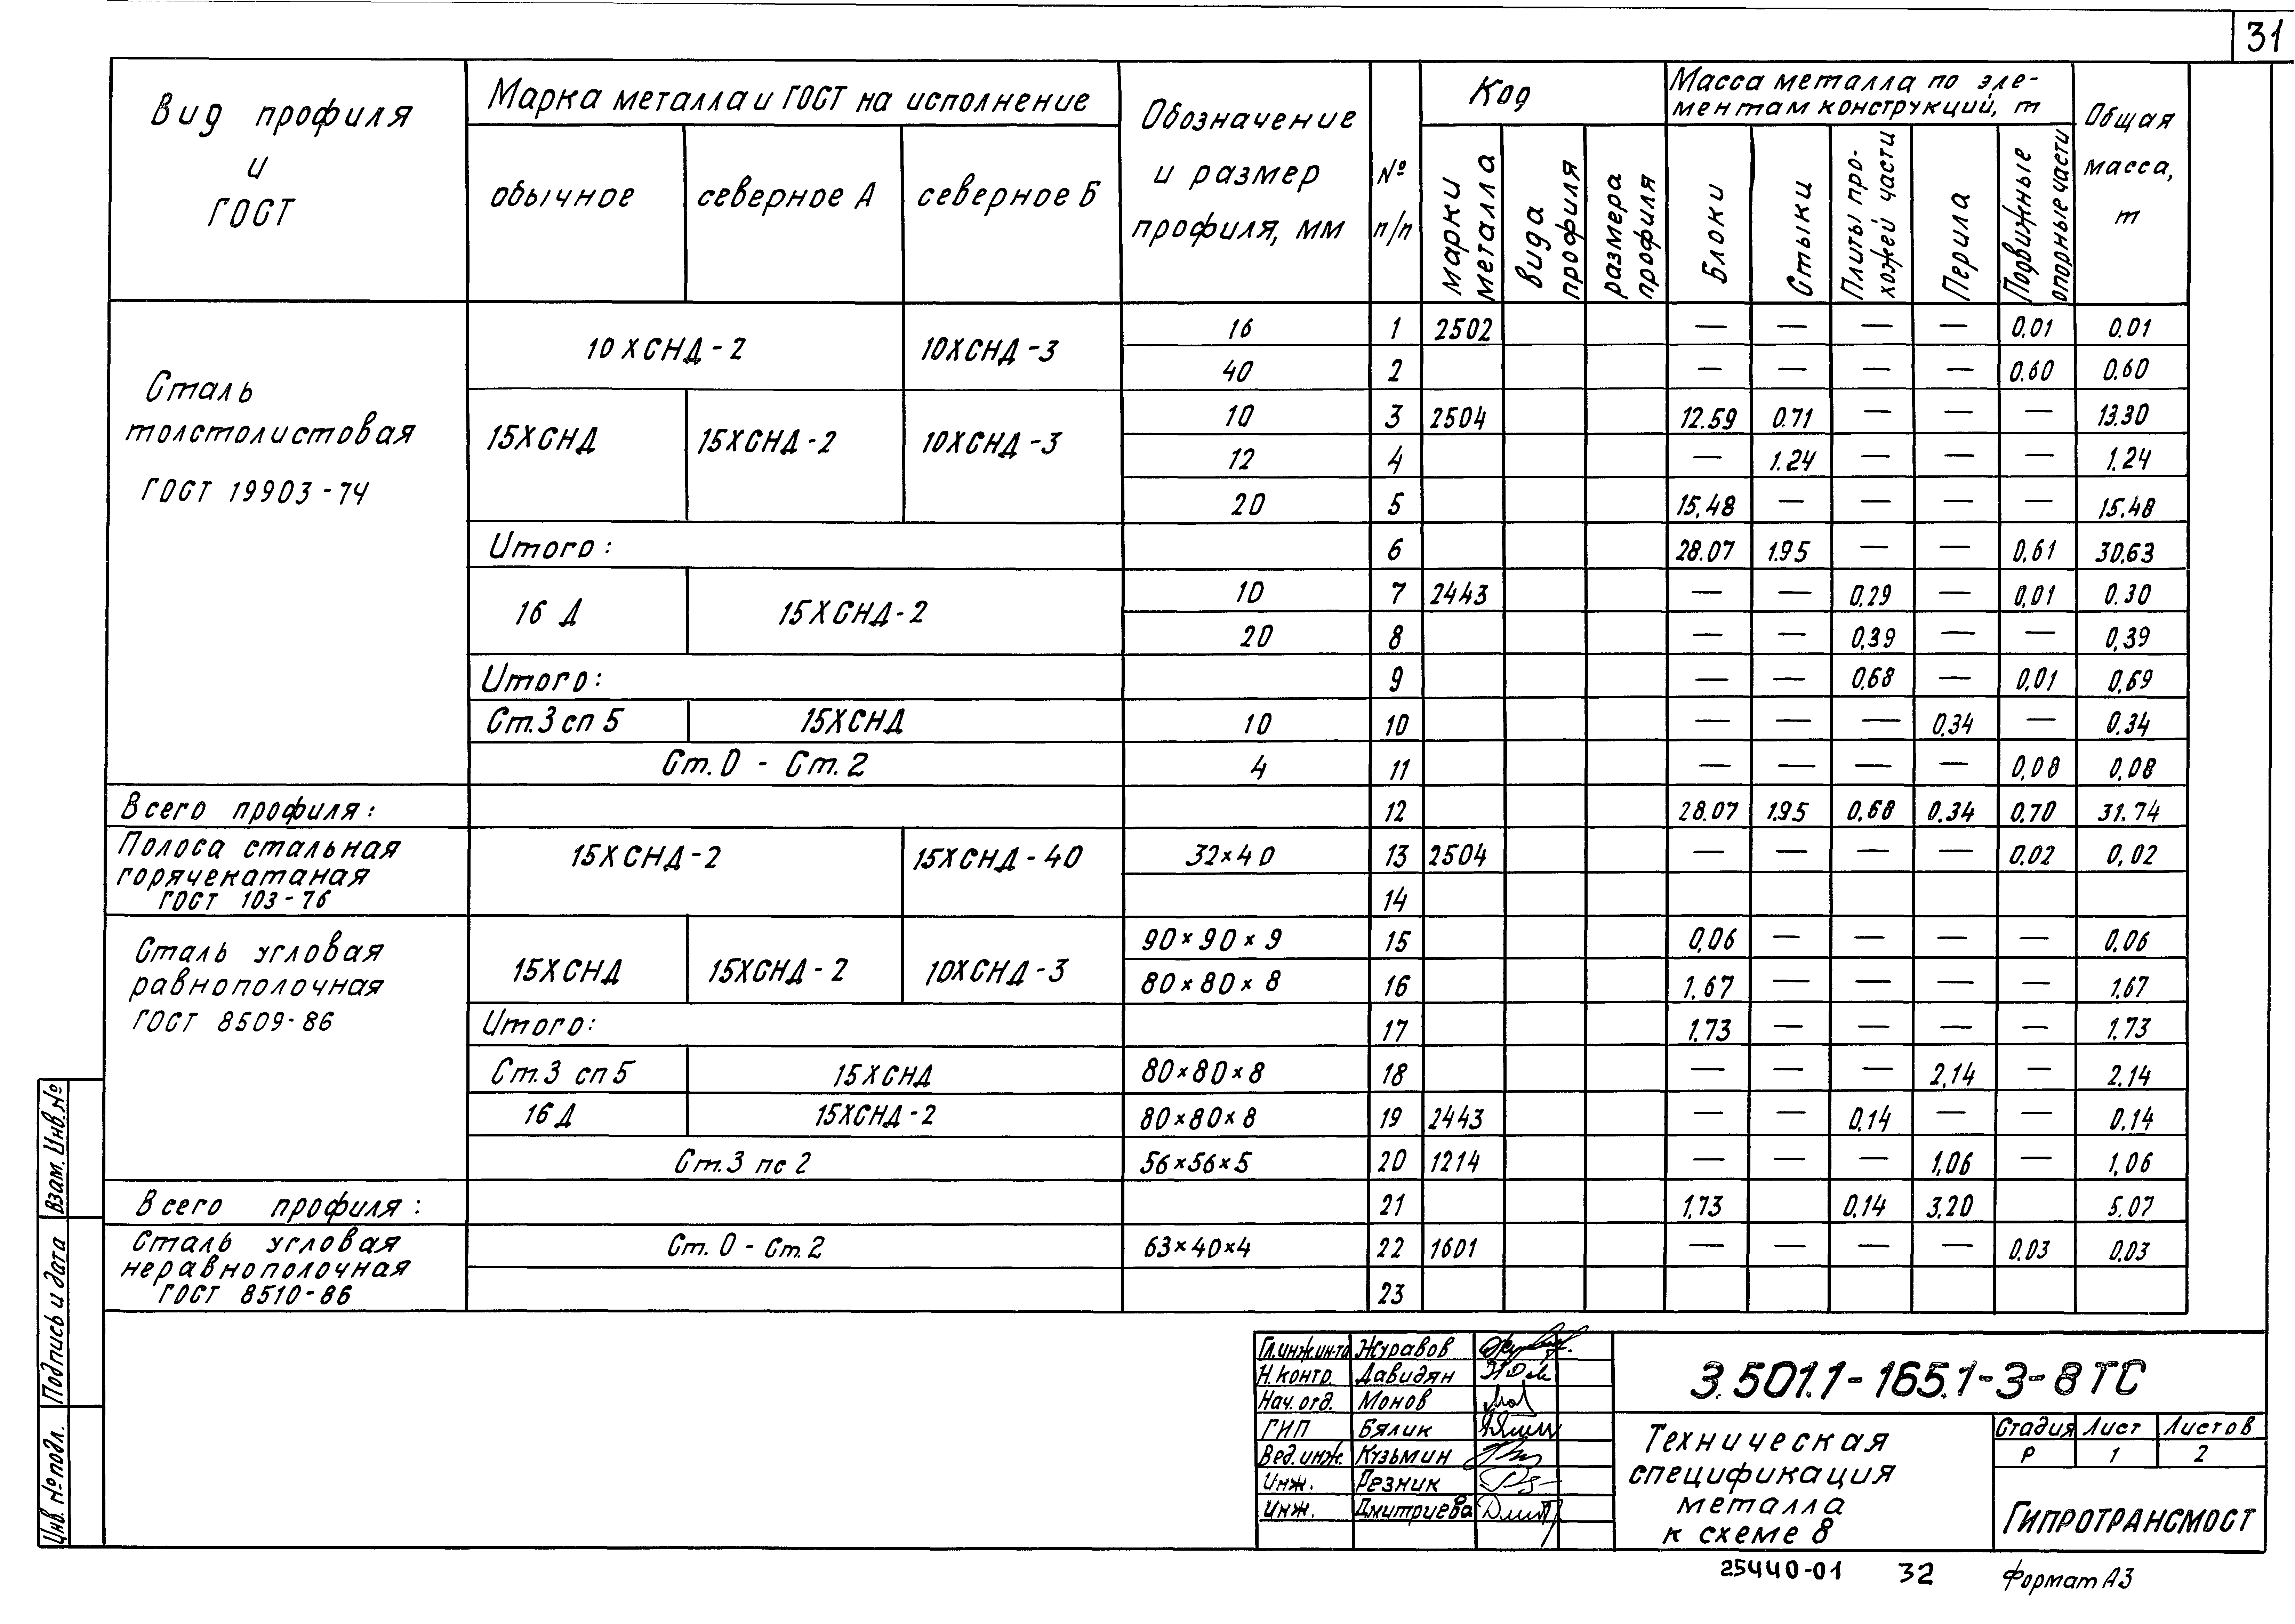 31
Вид профиля и ГОСТ
Марка металла и ГОСТ на исполнение
обычное
северное А
северное Б
Обозначение и размер профиля, мм
№ п/п
Код
марки металла
вида профиля
размера профиля
Масса металла по эле-
ментам конструкций, т
Блоки
Стыки
Плиты про-
хожей части
Перила
Подвижные опорные части
Общая масса, т
Сталь
толстолистовая
ГОСТ 19903-74
10ХСНД-2 10ХСНД-3
16 1 2502 — — — — 0,01 0.01
40 2 — — — — 0.60 0.60
15ХСНД 15ХСНД-2 10ХСНД-3
10 3 2504 12.59 0.71 — — — 13.30
12 4 — 1.24 — — — 1.24
20 5 15,48 — — — — 15.48
Итого: 6 28.07 1.95 — — 0,61 30,63
16 Д 15ХСНД-2
10 7 2443 — — 0,29 — 0,01 0.30
20 8 — — 0,39 — — 0,39
Итого: 9 — — 0,68 — 0,01 0,69
Ст.3 сп 5 15ХСНД 10 10 — — — 0.34 — 0.34
Ст.0 - Ст.2 4 11 — — — — 0,08 0,08
Всего профиля: 12 28.07 1.95 0,68 0.34 0,70 31.74
Полоса стальная
горячекатаная
ГОСТ 103-76
15ХСНД-2 15ХСНД-40 32×40 13 2504 — — — — 0.02 0,02
14
Сталь угловая
равнополочная
ГОСТ 8509-86
15ХСНД 15ХСНД-2 10ХСНД-3
90×90×9 15 0,06 — — — — 0.06
80×80×8 16 1.67 — — — — 1,67
Итого: 17 1.73 — — — — 1.73
Ст.3 сп5 15ХСНД 80×80×8 18 — — — 2,14 — 2.14
16Д 15ХСНД-2 80×80×8 19 2443 — — 0,14 — — 0.14
Ст.3 пс 2 56×56×5 20 1214 — — — 1,06 — 1,06
Всего профиля: 21 1,73 0,14 3.20 5.07
Сталь угловая
неравнополочная
ГОСТ 8510-86
Ст.0 - Ст.2 63×40×4 22 1601 — — — — 0,03 0,03
23
Взам. Инв.№
Подпись и дата
Инв. № подл.
Гл.инж.ин-та Журавов
Н.контр. Давидян
Нач.отд. Монов
ГИП Бялик
Вед.инж. Кузьмин
Инж. Резник
Инж. Дмитриева
3.501.1-165.1-3-8ТС
Техническая
спецификация
металла
к схеме 8
Стадия Лист Листов
Р 1 2
ГИПРОТРАНСМОСТ
25440-01 32 Формат А3